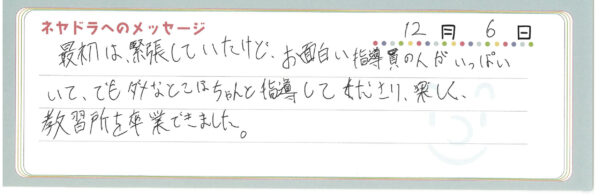 ネヤドラへのメッセージ 12月 6日
最初は、緊張していたけど、お面白い指導員の人がいっぱい
いて、でもダメなとこはちゃんと指導して くださり、楽しく、
教習所を卒業できました。